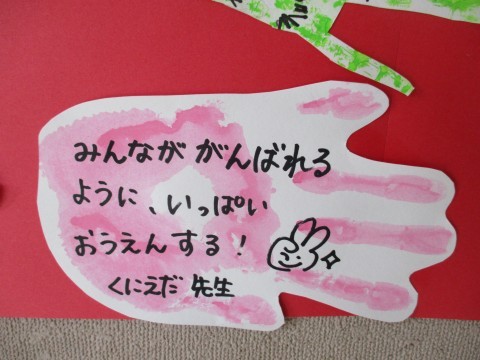 みんなが がんばれる
ように、いっぱい
おうえんする！
くにえだ 先生